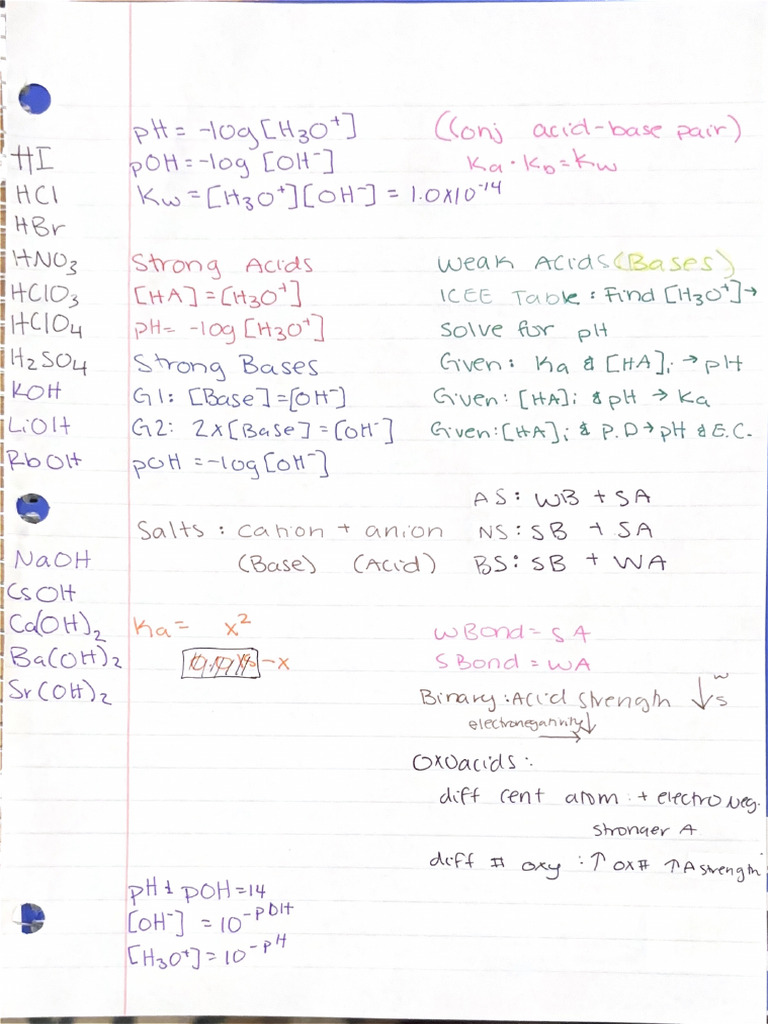 HI
HCl
HBr
HNO3
HClO3
HClO4
H2SO4
KOH
LiOH
RbOH
NaOH
CsOH
Ca(OH)2
Ba(OH)2
Sr(OH)2
pH = -log[H3O+]
pOH = -log [OH-]
Kw = [H3O+][OH-] = 1.0x10-14
(Conj acid-base pair)
Ka · Kb = Kw
Strong Acids
[HA] = [H3O+]
pH= -log[H3O+]
Strong Bases
G1: [Base] = [OH-]
G2: 2x[Base] = [OH-]
pOH = -log[OH-]
Weak Acids (Bases)
ICEE Table : Find [H3O+]→
Solve for pH
Given: Ka & [HA]i → pH
Given: [HA]i & pH → Ka
Given: [HA]i & P.D → pH & E.C.
Salts : cation + anion
(Base) (Acid)
AS: WB + SA
NS: SB + SA
BS: SB + WA
Ka = x2
-x
W Bond = SA
S Bond = WA
Binary : Acid strength ↓ w s
electronegativity ↓ →
Oxoacids :
diff cent atom : + electro neg.
stronger A
diff # oxy : ↑ ox# ↑ A strength
pH + pOH = 14
[OH-] = 10-pOH
[H3O+] = 10-pH